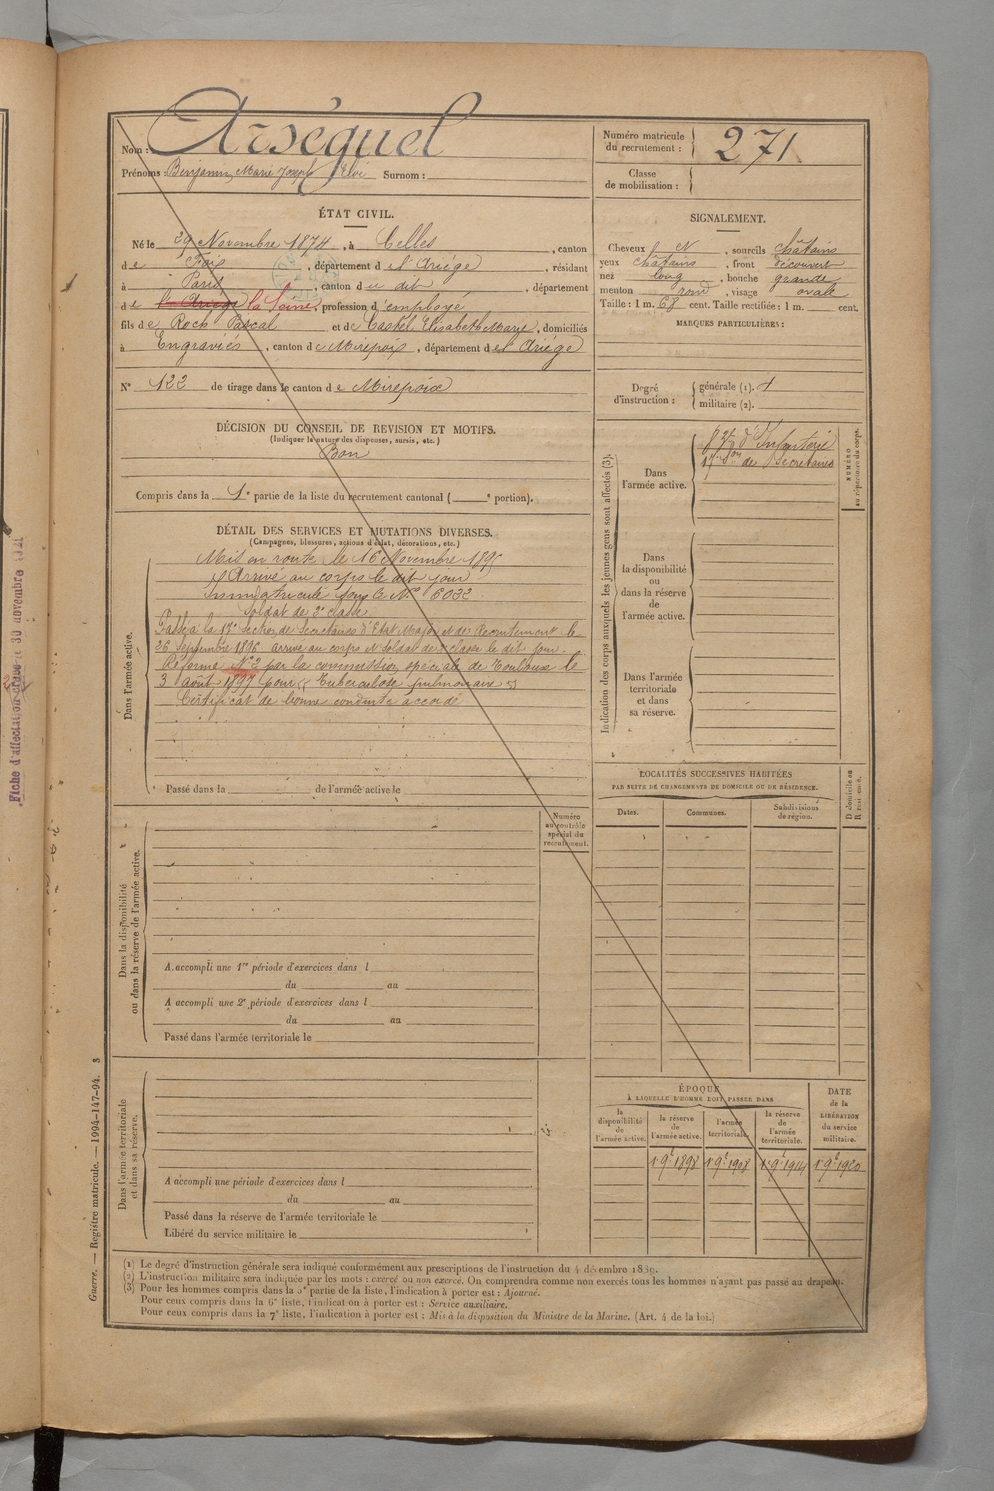 Nom : Arséguel
Prénoms : Benjamin, Marie Joseph Eloi Surnom :
Numéro matricule du recrutement : 271
Classe de mobilisation :
ÉTAT CIVIL.
Né le 29 Novembre 1874, à Celles, canton
de Foix, département de l'Ariège, résidant
à Paris, canton du dit, département
de l'Ariège la Seine, profession d'employé
fils de Roch Pascal et de Castel Elisabeth Marie, domiciliés
à Engraviès, canton de Mirepoix, département de l'Ariège
N° 122 de tirage dans le canton de Mirepoix
DÉCISION DU CONSEIL DE REVISION ET MOTIFS.
(Indiquer la nature des dispenses, sursis, etc.)
Bon
Compris dans la 1e partie de la liste du recrutement cantonal ( e portion).
SIGNALEMENT.
Cheveux N, sourcils châtains
yeux châtains, front découvert
nez long, bouche grande
menton rond, visage ovale
Taille : 1 m. 68 cent. Taille rectifiée : 1 m. cent.
MARQUES PARTICULIÈRES :
Degré d'instruction : générale (1). 1
militaire (2).
DÉTAIL DES SERVICES ET MUTATIONS DIVERSES.
(Campagnes, blessures, actions d'éclat, décorations, etc.)
Dans l'armée active.
Mis en route le 16 Novembre 1895
Arrivé au corps le dit jour
Immatriculé sous le N° 6032
Soldat de 2e classe
Passé à la 17e section de Secrétaires d'Etat Major et de Recrutement le
26 Septembre 1896 arrivé au corps et soldat de 2e classe le dit jour.
Réformé N°2 par la commission spéciale de Toulouse le
3 août 1897 pour « Tuberculose pulmonaire »
Certificat de bonne conduite accordé
Passé dans la de l'armée active le
Indication des corps auxquels les jeunes gens sont affectés (3).
Dans l'armée active.
d'Infanterie
17e Son de Secrétaires
NUMÉRO au répertoire du corps.
Dans la disponibilité ou dans la réserve de l'armée active.
Dans l'armée territoriale et dans sa réserve.
LOCALITÉS SUCCESSIVES HABITÉES
PAR SUITE DE CHANGEMENTS DE DOMICILE OU DE RÉSIDENCE.
Dates. Communes. Subdivisions de région.
D domicile ou R résidence.
Dans la disponibilité ou dans la réserve de l'armée active.
Numéro au contrôle spécial du recrutement.
A accompli une 1re période d'exercices dans l
du au
A accompli une 2e période d'exercices dans l
du au
Passé dans l'armée territoriale le
Dans l'armée territoriale et dans sa réserve.
A accompli une période d'exercices dans l
du au
Passé dans la réserve de l'armée territoriale le
Libéré du service militaire le
ÉPOQUE
À LAQUELLE L'HOMME DOIT PASSER DANS
la disponibilité de l'armée active.
la réserve de l'armée active.
l'armée territoriale.
la réserve de l'armée territoriale.
DATE de la LIBÉRATION du service militaire.
1 9e 1898 1 9e 1908 1 9e 1914 1 9e 1920
(1) Le degré d'instruction générale sera indiqué conformément aux prescriptions de l'instruction du 4 décembre 1889.
(2) L'instruction militaire sera indiquée par les mots : exercé ou non exercé. On comprendra comme non exercés tous les hommes n'ayant pas passé au drapeau.
(3) Pour les hommes compris dans la 5e partie de la liste, l'indication à porter est : Ajourné.
Pour ceux compris dans la 6e liste, l'indication à porter est : Service auxiliaire.
Pour ceux compris dans la 7e liste, l'indication à porter est : Mis à la disposition du Ministre de la Marine. (Art. 4 de la loi.)
Guerre. — Registre matricule. — 1994-147-94. 3
Fiche d'affectation 30 novembre